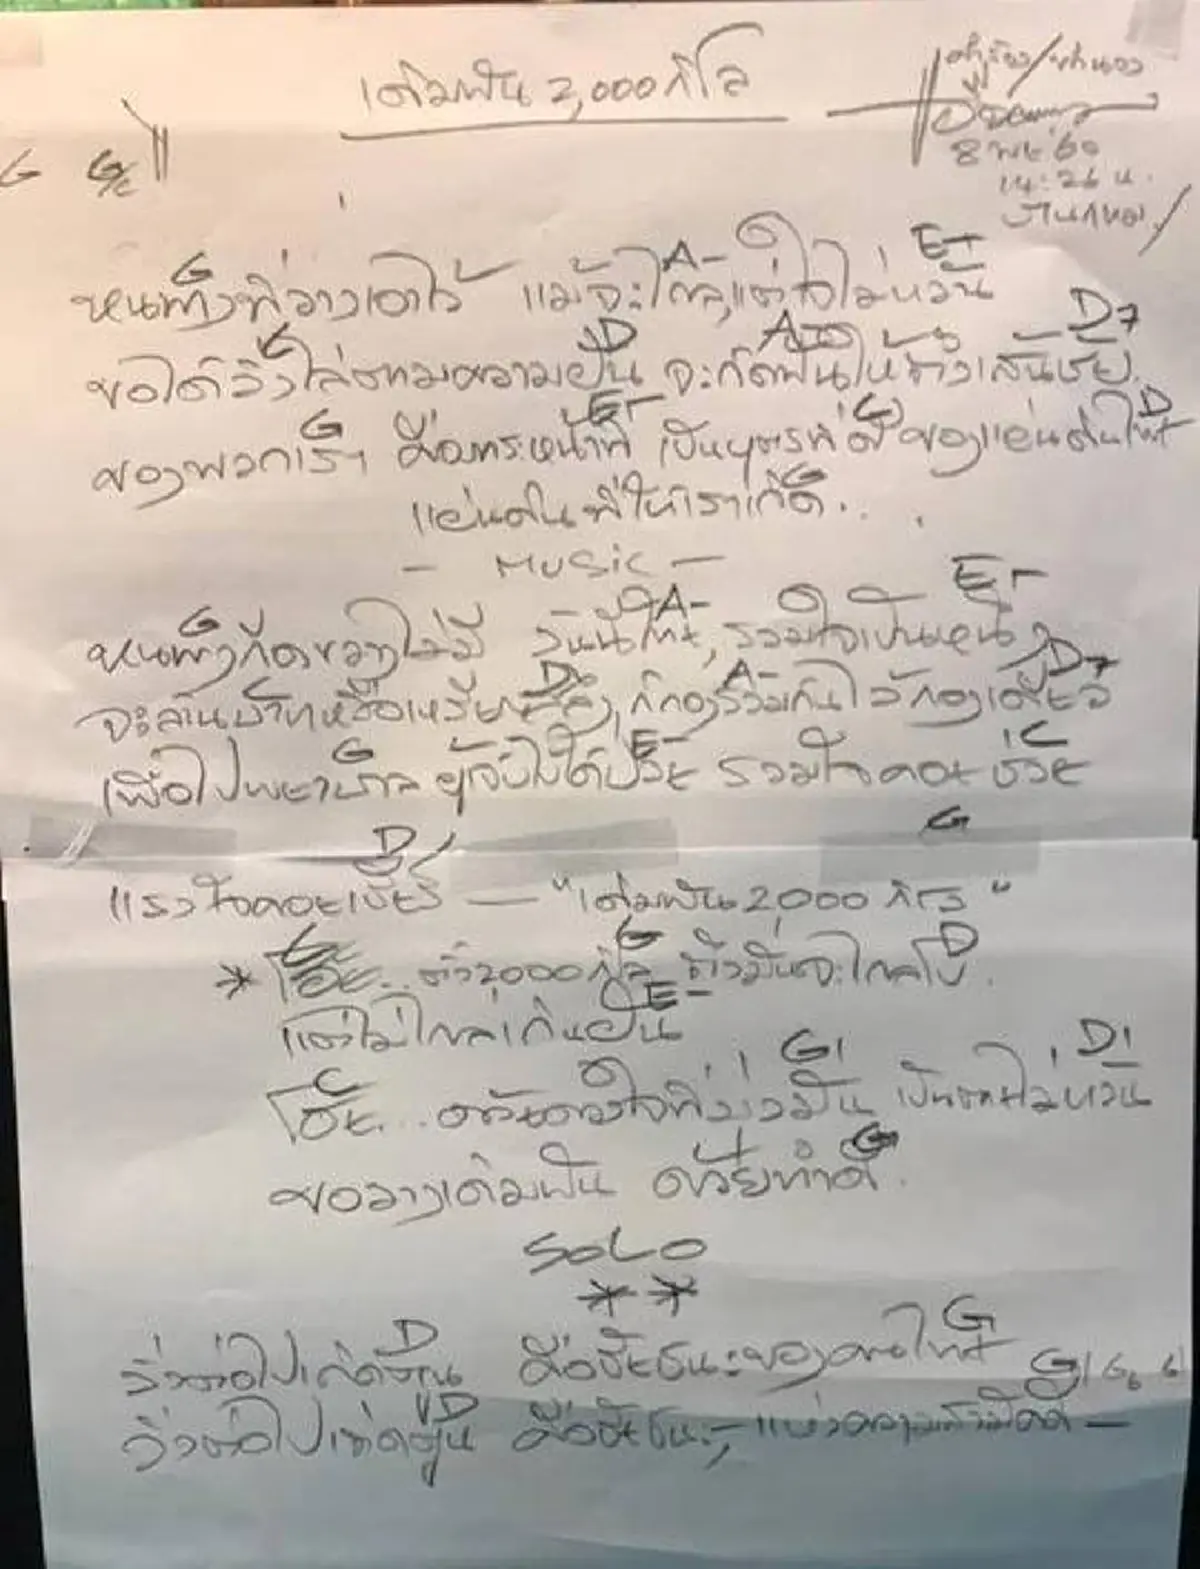 เติมฝัน 2,000 กิโล
คำร้อง/ทำนอง
8 พย 60
14:26 น.
G G/C
G A- E-
หนทางที่วางเอาไว้ แม้จะไกลแต่ใจไม่หวั่น
C D A- D7
ขอได้วิ่งไล่ตามความฝัน จะกัดฟันให้ถึงเส้นชัย
G E- G D
ของพวกเรา คือภาระหน้าที่ เป็นบุตรที่ดี ของแผ่นดินไทย
G
แผ่นดินที่ให้เราเกิด...
- MUSIC -
G A- E-
หนทางกีดขวางไม่มี วันนี้ไทย รวมใจเป็นหนึ่ง
C D A- D7
จะล้านบาทหรือเหรียญสลึง ก็กองรวมกันไว้กองเดียว
G E- C
เพื่อโรงพยาบาล ผู้เจ็บไข้ได้ป่วย รวมใจคอยช่วย
D G
แรงใจคอยเชียร์ — "เติมฝัน 2,000 กิโล"
G G D
* โอ้ย.. ตั้ง 2,000 กิโล ถึงมันจะไกลโข
E-
แต่ไม่ไกลเกินฝัน
C G D
โอ้ย... ด้วยดวงใจที่มุ่งมั่น เป็นตายไม่หวั่น
G
ขอวางเดิมพัน ด้วยทำดี.
SOLO
* *
D G
วิ่งต่อไปเถิดพี่ตูน คือชัยชนะของคนไทย
D G G6 G
วิ่งต่อไปเถิดตูน คือชัยชนะ แห่งความสามัคคี —